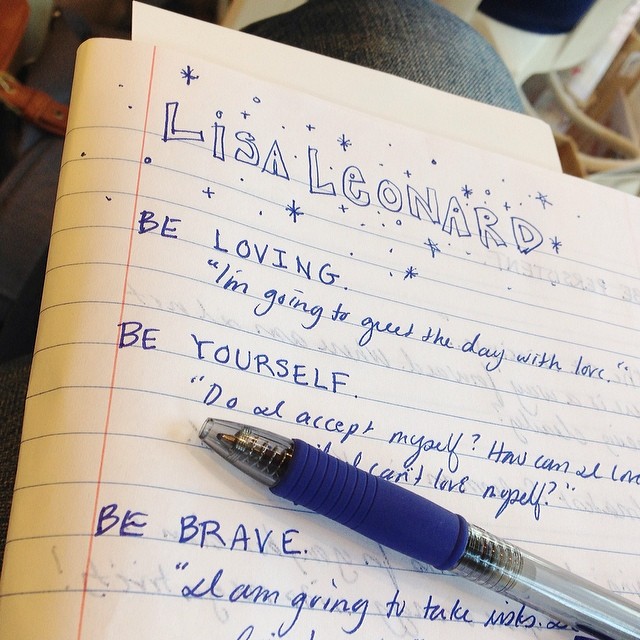 LiSA LEONARD
BE LOVING.
"I'm going to greet the day with love."
BE YOURSELF.
"Do I accept myself? How can I
I can't love myself?"
BE BRAVE.
"I am going to take risks.